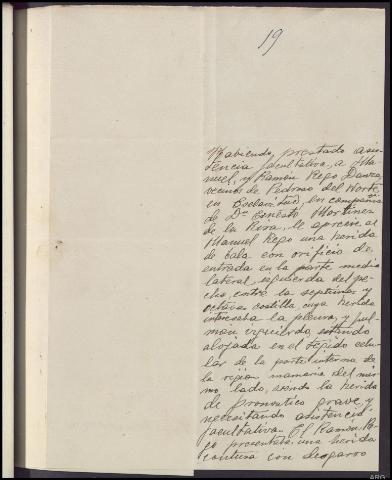 19
Habiendo, prestado asis-
tencia facultativa, a Ma-
nuel, y Ramón Rego
vecinos de Pedroso del Norte,
en en compañia
de Dn Ernesto Martinez
de la Riva, le aprecié al
Manuel Rego una herida
de bala con orificio de
entrada en la parte media
lateral, izquierda del pe-
cho, entre la septima y
octava costilla, cuya herida
interesaba la pleura, y pul-
món izquierdo, estando
alojada en el tejido celu-
lar de la parte interna de
la región mamaria del mis-
mo lado, siendo la herida
de pronostico grave, y
necesitando asistencia
facultativa. El Ramón Re-
go presentaba una herida
contusa con desgarro
ARG